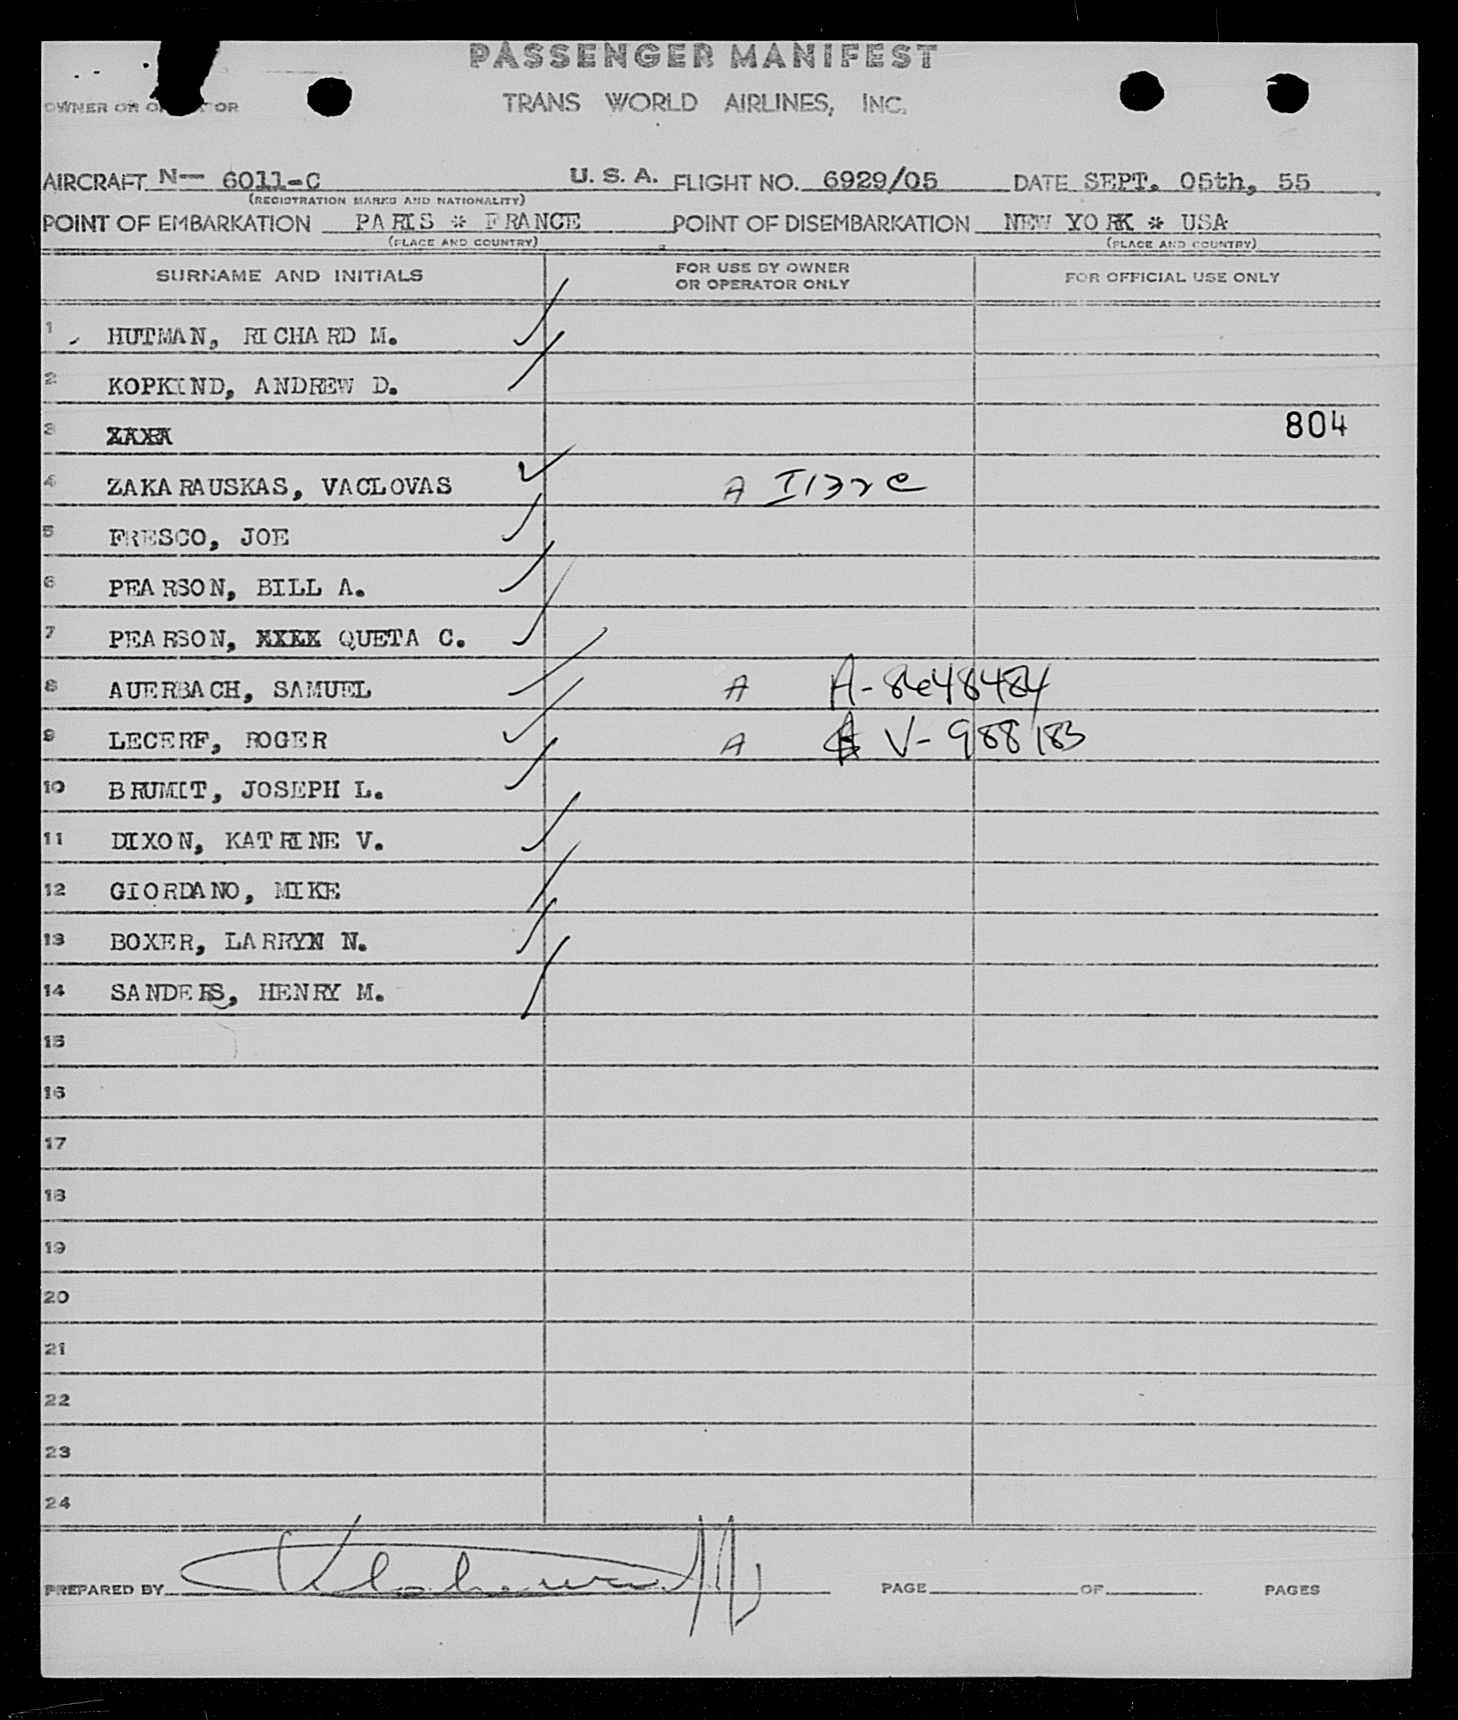 PASSENGER MANIFEST
OWNER OR OPERATOR TRANS WORLD AIRLINES, INC.
AIRCRAFT N- 6011-C U. S. A. FLIGHT NO. 6929/05 DATE SEPT. 05th, 55
(REGISTRATION MARKS AND NATIONALITY)
POINT OF EMBARKATION PARIS * FRANCE POINT OF DISEMBARKATION NEW YORK * USA
(PLACE AND COUNTRY) (PLACE AND COUNTRY)
SURNAME AND INITIALS FOR USE BY OWNER OR OPERATOR ONLY FOR OFFICIAL USE ONLY
1 HUTMAN, RICHARD M.
2 KOPKIND, ANDREW D.
3 804
4 ZAKARAUSKAS, VACLOVAS A
5 FRESCO, JOE
6 PEARSON, BILL A.
7 PEARSON, XXXX QUETA C.
8 AUERBACH, SAMUEL A
9 LECERF, ROGER A V-988183
10 BRUMIT, JOSEPH L.
11 DIXON, KATRINE V.
12 GIORDANO, MIKE
13 BOXER, LARRYN N.
14 SANDERS, HENRY M.
15
16
17
18
19
20
21
22
23
24
PREPARED BY PAGE OF PAGES